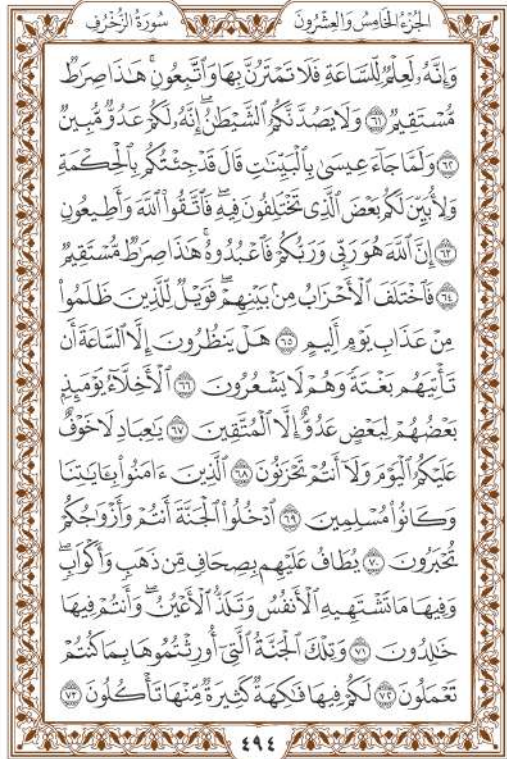 الجُزْءُ الخَامِسُ وَالعِشْرُونَ
سُورَةُ الزُّخْرُفِ
وَإِنَّهُۥ لَعِلْمٌ لِّلسَّاعَةِ فَلَا تَمْتَرُنَّ بِهَا وَٱتَّبِعُونِ ۚ هَـٰذَا صِرَٰطٌ
مُّسْتَقِيمٌ ٦١ وَلَا يَصُدَّنَّكُمُ ٱلشَّيْطَـٰنُ ۖ إِنَّهُۥ لَكُمْ عَدُوٌّ مُّبِينٌ
٦٢ وَلَمَّا جَآءَ عِيسَىٰ بِٱلْبَيِّنَـٰتِ قَالَ قَدْ جِئْتُكُم بِٱلْحِكْمَةِ
وَلِأُبَيِّنَ لَكُم بَعْضَ ٱلَّذِى تَخْتَلِفُونَ فِيهِ ۖ فَٱتَّقُوا۟ ٱللَّهَ وَأَطِيعُونِ
٦٣ إِنَّ ٱللَّهَ هُوَ رَبِّى وَرَبُّكُمْ فَٱعْبُدُوهُ ۚ هَـٰذَا صِرَٰطٌ مُّسْتَقِيمٌ
٦٤ فَٱخْتَلَفَ ٱلْأَحْزَابُ مِنۢ بَيْنِهِمْ ۖ فَوَيْلٌ لِّلَّذِينَ ظَلَمُوا۟
مِنْ عَذَابِ يَوْمٍ أَلِيمٍ ٦٥ هَلْ يَنظُرُونَ إِلَّا ٱلسَّاعَةَ أَن
تَأْتِيَهُم بَغْتَةً وَهُمْ لَا يَشْعُرُونَ ٦٦ ٱلْأَخِلَّآءُ يَوْمَئِذٍۭ
بَعْضُهُمْ لِبَعْضٍ عَدُوٌّ إِلَّا ٱلْمُتَّقِينَ ٦٧ يَـٰعِبَادِ لَا خَوْفٌ
عَلَيْكُمُ ٱلْيَوْمَ وَلَآ أَنتُمْ تَحْزَنُونَ ٦٨ ٱلَّذِينَ ءَامَنُوا۟ بِـَٔايَـٰتِنَا
وَكَانُوا۟ مُسْلِمِينَ ٦٩ ٱدْخُلُوا۟ ٱلْجَنَّةَ أَنتُمْ وَأَزْوَٰجُكُمْ
تُحْبَرُونَ ٧٠ يُطَافُ عَلَيْهِم بِصِحَافٍ مِّن ذَهَبٍ وَأَكْوَابٍ ۖ
وَفِيهَا مَا تَشْتَهِيهِ ٱلْأَنفُسُ وَتَلَذُّ ٱلْأَعْيُنُ ۖ وَأَنتُمْ فِيهَا
خَـٰلِدُونَ ٧١ وَتِلْكَ ٱلْجَنَّةُ ٱلَّتِىٓ أُورِثْتُمُوهَا بِمَا كُنتُمْ
تَعْمَلُونَ ٧٢ لَكُمْ فِيهَا فَـٰكِهَةٌ كَثِيرَةٌ مِّنْهَا تَأْكُلُونَ ٧٣
٤٩٤